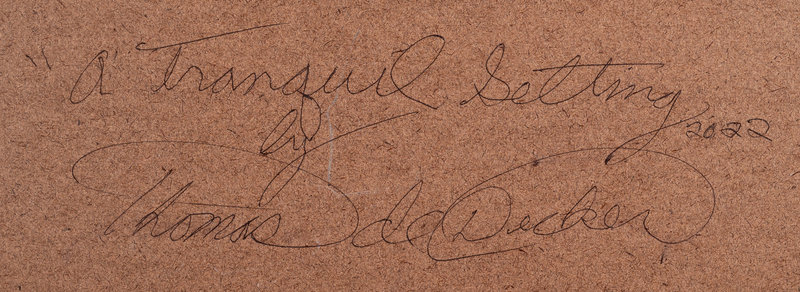 "A Tranquil Setting
2022
by
Thomas deDecker